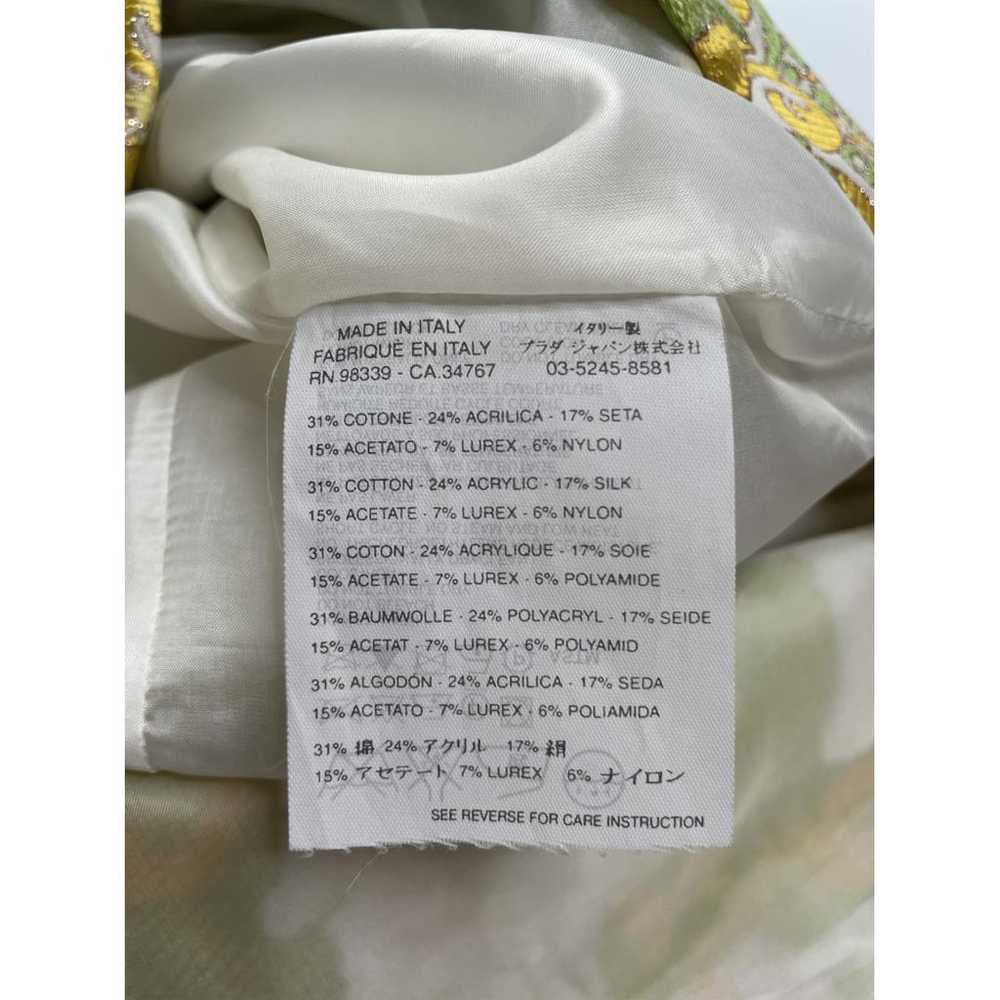 MADE IN ITALY
FABRIQUÈ EN ITALY
RN.98339 - CA.34767
イタリー製
プラダ ジャパン株式会社
03-5245-8581
31% COTONE - 24% ACRILICA - 17% SETA
15% ACETATO - 7% LUREX - 6% NYLON
31% COTTON - 24% ACRYLIC - 17% SILK
15% ACETATE - 7% LUREX - 6% NYLON
31% COTON - 24% ACRYLIQUE - 17% SOIE
15% ACETATE - 7% LUREX - 6% POLYAMIDE
31% BAUMWOLLE - 24% POLYACRYL - 17% SEIDE
15% ACETAT - 7% LUREX - 6% POLYAMID
31% ALGODÓN - 24% ACRILICA - 17% SEDA
15% ACETATO - 7% LUREX - 6% POLIAMIDA
31% 綿 24% アクリル 17% 絹
15% アセテート 7% LUREX 6% ナイロン
SEE REVERSE FOR CARE INSTRUCTION